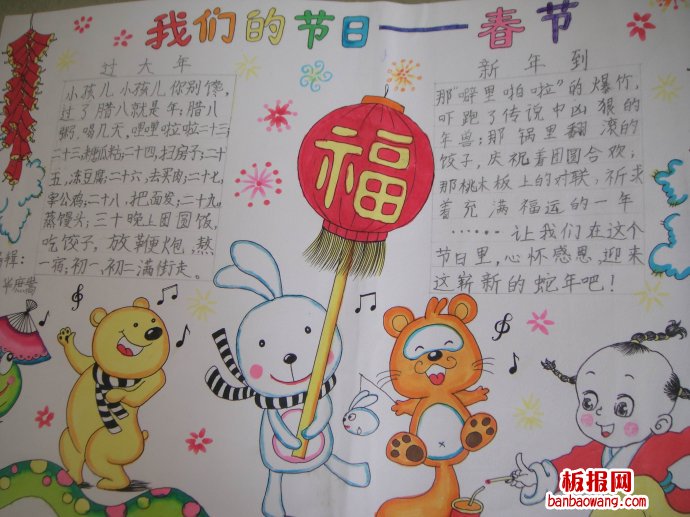 我们的节日——春节
过大年
小孩儿小孩儿你别馋，
过了腊八就是年；腊八
粥，喝几天，哩哩啦啦二十三；
二十三，糖瓜粘；二十四，扫房子；二十
五，冻豆腐；二十六，去买肉；二十七，
宰公鸡；二十八，把面发；二十九，
蒸馒头；三十晚上团圆饭，
吃饺子，放鞭炮，熬
一宿；初一、初二满街走。
新年到
那“噼里啪啦”的爆竹，
吓跑了传说中凶狠的
年兽；那锅里翻滚的
饺子，庆祝着团圆合欢；
那桃木板上的对联，祈求
着充满福运的一年
……让我们在这个
节日里，心怀感恩，迎来
这崭新的蛇年吧！
福
板报网
banbaowang.com